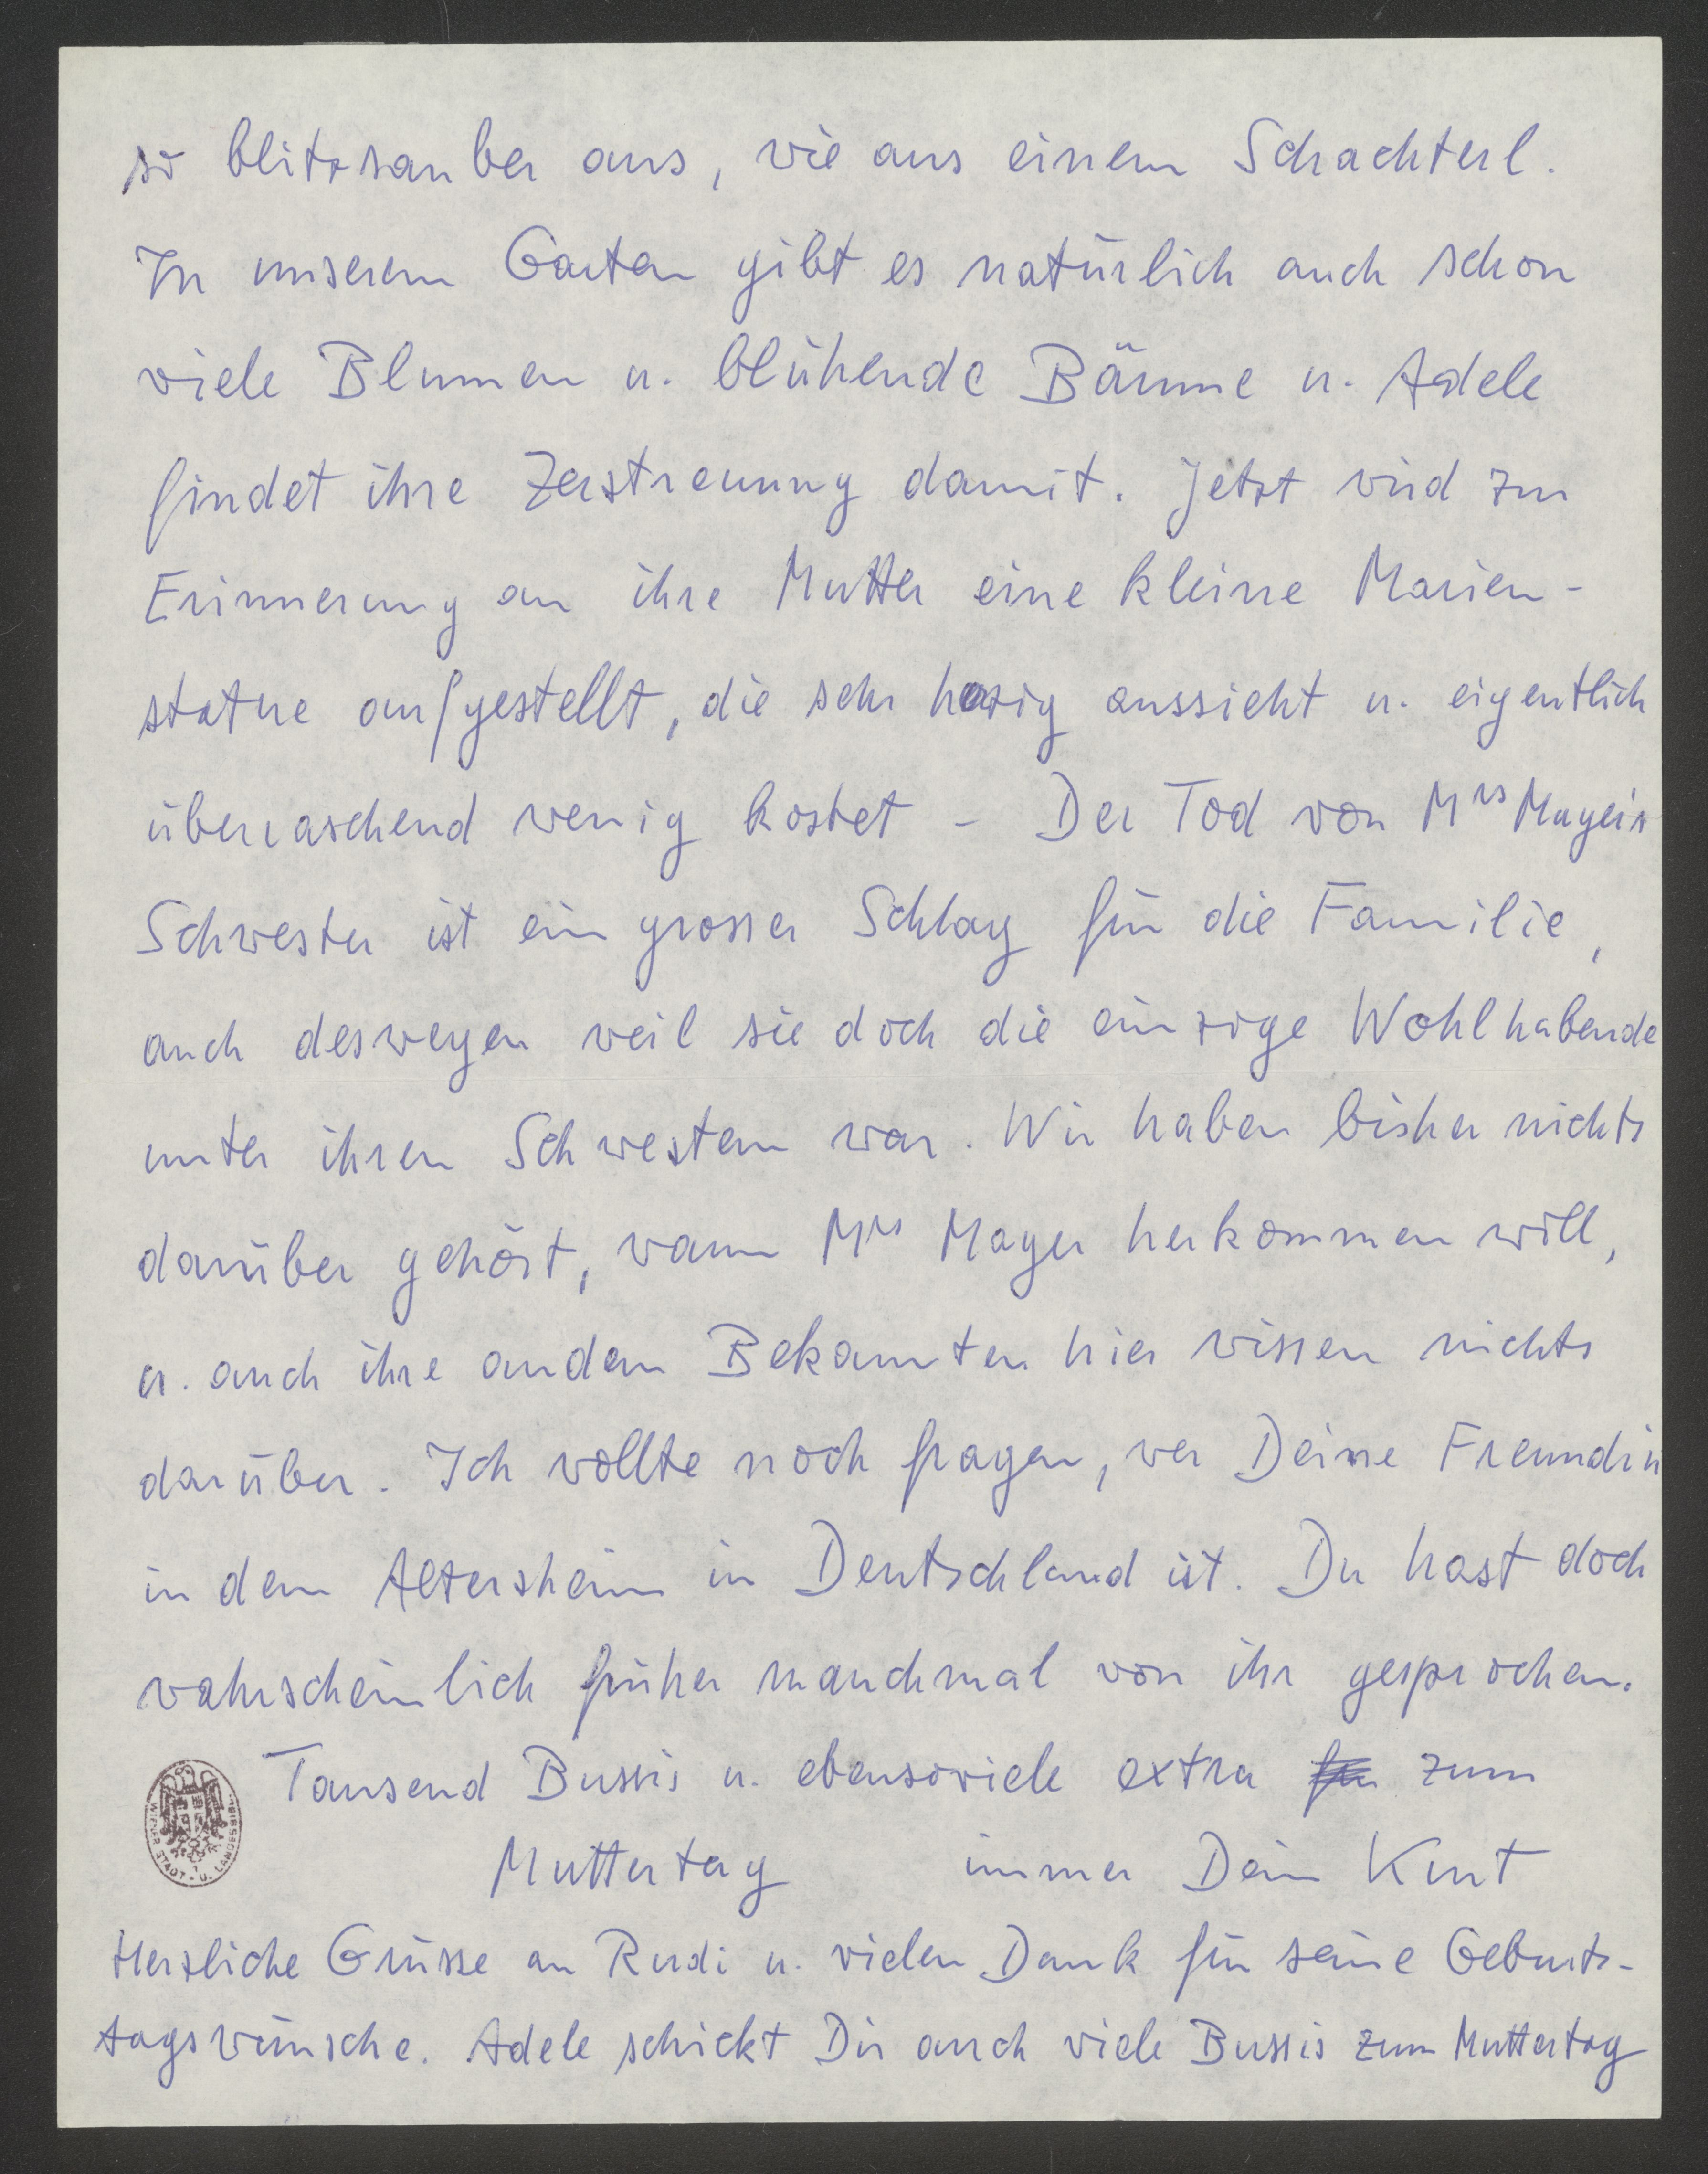 so blitzsauber aus, wie aus einem Schachterl.
In unserem Garten gibt es natürlich auch schon
viele Blumen u. blühende Bäume u. Adele
findet ihre Zerstreuung damit. Jetzt wird zur
Erinnerung an ihre Mutter eine kleine Marien-
statue aufgestellt, die sehr herzig aussieht u. eigentlich
überraschend wenig kostet – Der Tod von Mrs Mayers
Schwester ist ein grosser Schlag für die Familie,
auch deswegen weil sie doch die einzige Wohlhabende
unter ihren Schwestern war. Wir haben bisher nichts
darüber gehört, wann Mrs Mayer herkommen will,
u. auch ihre andern Bekannten hier wissen nichts
darüber. Ich wollte noch fragen, wer Deine Freundin
in dem Altersheim in Deutschland ist. Du hast doch
wahrscheinlich früher manchmal von ihr gesprochen.
Tausend Bussis u. ebensoviele extra zum
Muttertag immer Dein Kurt
Herzliche Grüsse an Rudi u. vielen Dank für seine Geburts-
tagswünsche. Adele schickt Dir auch viele Bussis zum Muttertag
WIENER STADT- U. LANDESBIBL.